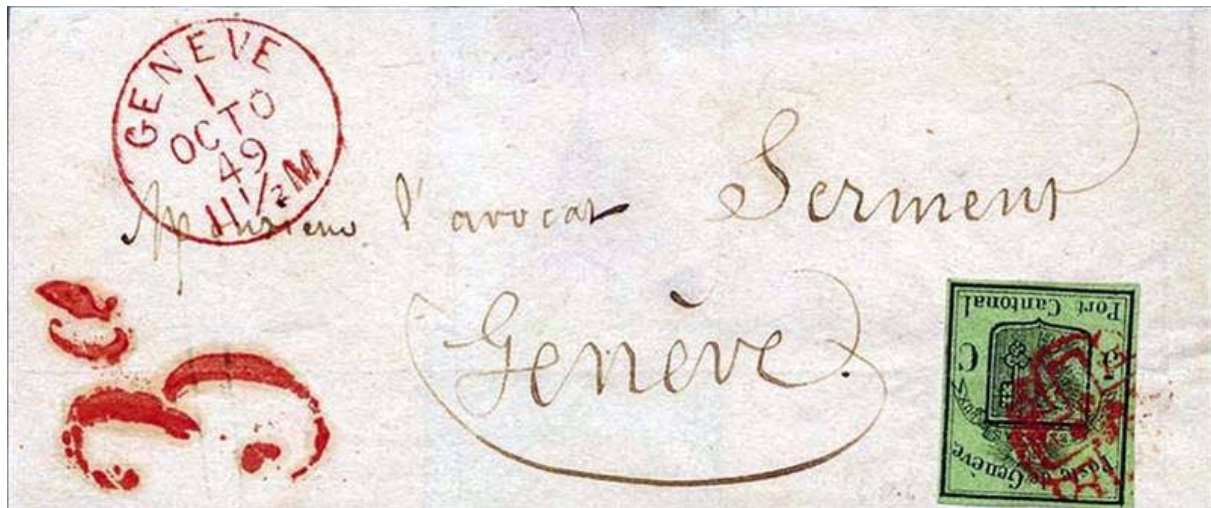 GENEVE
1
OCTO
49
11 1/2 M
Monsieur l'avocat Serment
Genève.
Port Cantonal
5 C
Poste de Genève.